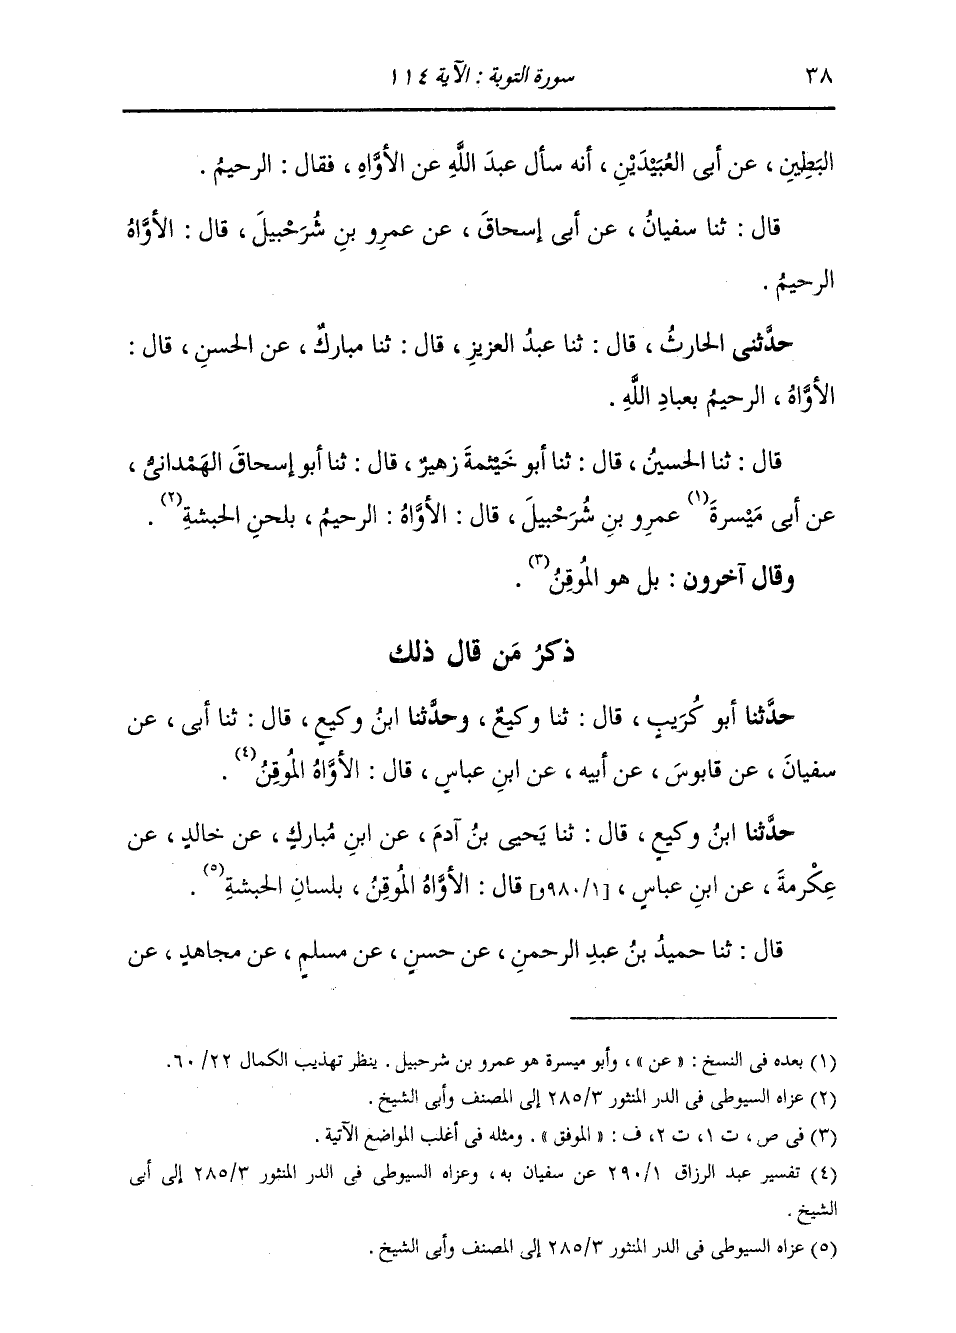 ٣٨ سورة التوبة : الآية ١١٤
البَطِينِ ، عن أبى العُبَيْدَيْنِ ، أنه سأل عبدَ اللَّهِ عن الأوَّاهِ ، فقال : الرحيمُ .
قال : ثنا سفيانُ ، عن أبى إسحاقَ ، عن عمرِو بنِ شُرَحْبيلَ ، قال : الأوَّاهُ
الرحيمُ .
حدَّثنى الحارثُ ، قال : ثنا عبدُ العزيزِ ، قال : ثنا مباركٌ ، عن الحسنِ ، قال :
الأوَّاهُ ، الرحيمُ بعبادِ اللَّهِ .
قال : ثنا الحسينُ ، قال : ثنا أبو خَيْثمةَ زهيرٌ ، قال : ثنا أبو إسحاقَ الهَمْدانىُّ ،
عن أبى مَيْسرةَ(١) عمرِو بنِ شُرَحْبيلَ ، قال : الأوَّاهُ : الرحيمُ ، بلحنِ الحبشةِ(٢) .
وقال آخرون : بل هو المُوقِنُ(٣) .
ذكرُ مَن قال ذلك
حدَّثنا أبو كُرَيبٍ ، قال : ثنا وكيعٌ ، وحدَّثنا ابنُ وكيعٍ ، قال : ثنا أبى ، عن
سفيانَ ، عن قابوسَ ، عن أبيه ، عن ابنِ عباسٍ ، قال : الأوَّاهُ المُوقِنُ(٤) .
حدَّثنا ابنُ وكيعٍ ، قال : ثنا يَحيى بنُ آدمَ ، عن ابنِ مُباركٍ ، عن خالدٍ ، عن
عِكْرمةَ ، عن ابنِ عباسٍ ، [٩٨٠/١و] قال : الأوَّاهُ المُوقِنُ ، بلسانِ الحبشةِ(٥) .
قال : ثنا حميدُ بنُ عبدِ الرحمنِ ، عن حسنٍ ، عن مسلمٍ ، عن مجاهدٍ ، عن
(١) بعده فى النسخ : « عن » ، وأبو ميسرة هو عمرو بن شرحبيل . ينظر تهذيب الكمال ٢٢/ ٦٠.
(٢) عزاه السيوطى فى الدر المنثور ٢٨٥/٣ إلى المصنف وأبى الشيخ .
(٣) فى ص ، ت ١، ت ٢، ف : « الموفق » . ومثله فى أغلب المواضع الآتية .
(٤) تفسير عبد الرزاق ٢٩٠/١ عن سفيان به ، وعزاه السيوطى فى الدر المنثور ٢٨٥/٣ إلى أبى
الشيخ .
(٥) عزاه السيوطى فى الدر المنثور ٢٨٥/٣ إلى المصنف وأبى الشيخ .